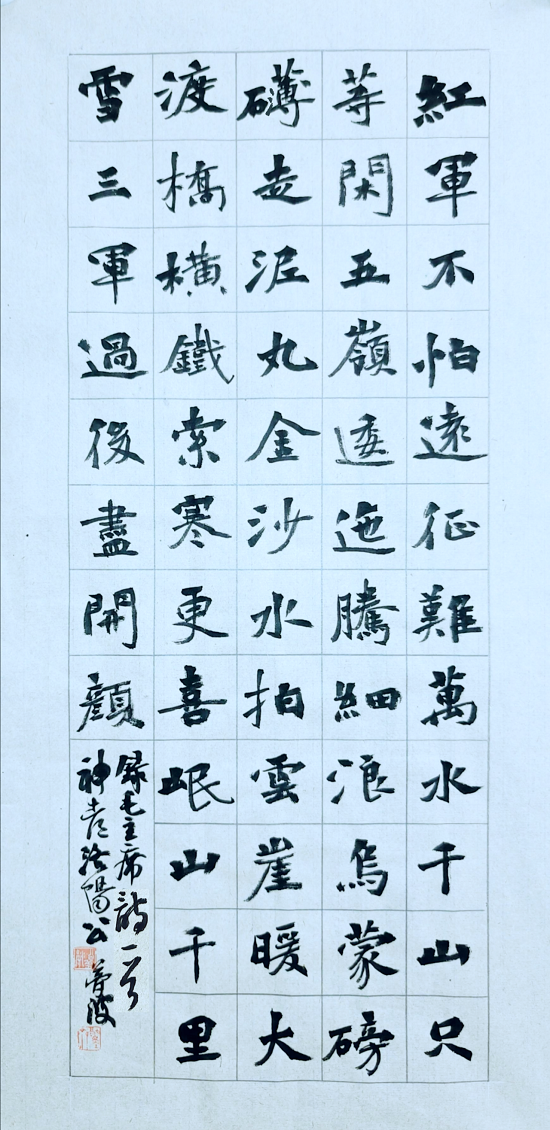 紅軍不怕遠征難萬水千山只
等閑五嶺逶迤騰細浪烏蒙磅
礴走泥丸金沙水拍雲崖暖大
渡橋橫鐵索寒更喜岷山千里
雪三軍過後盡開顏
錄毛主席詩一首
神都洛陽